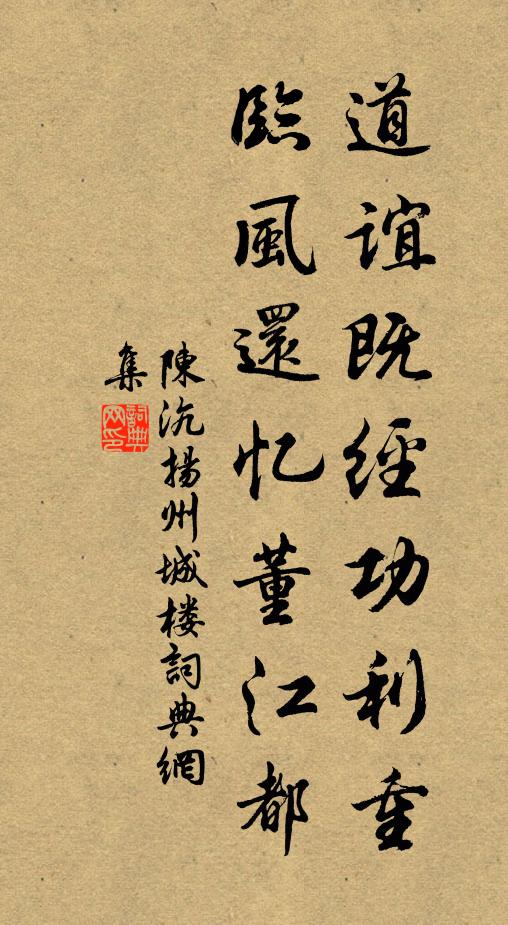 道誼既經功利重
臨風還忆董江都
陳沆揚州城楼詞典網
集
詞典
网印